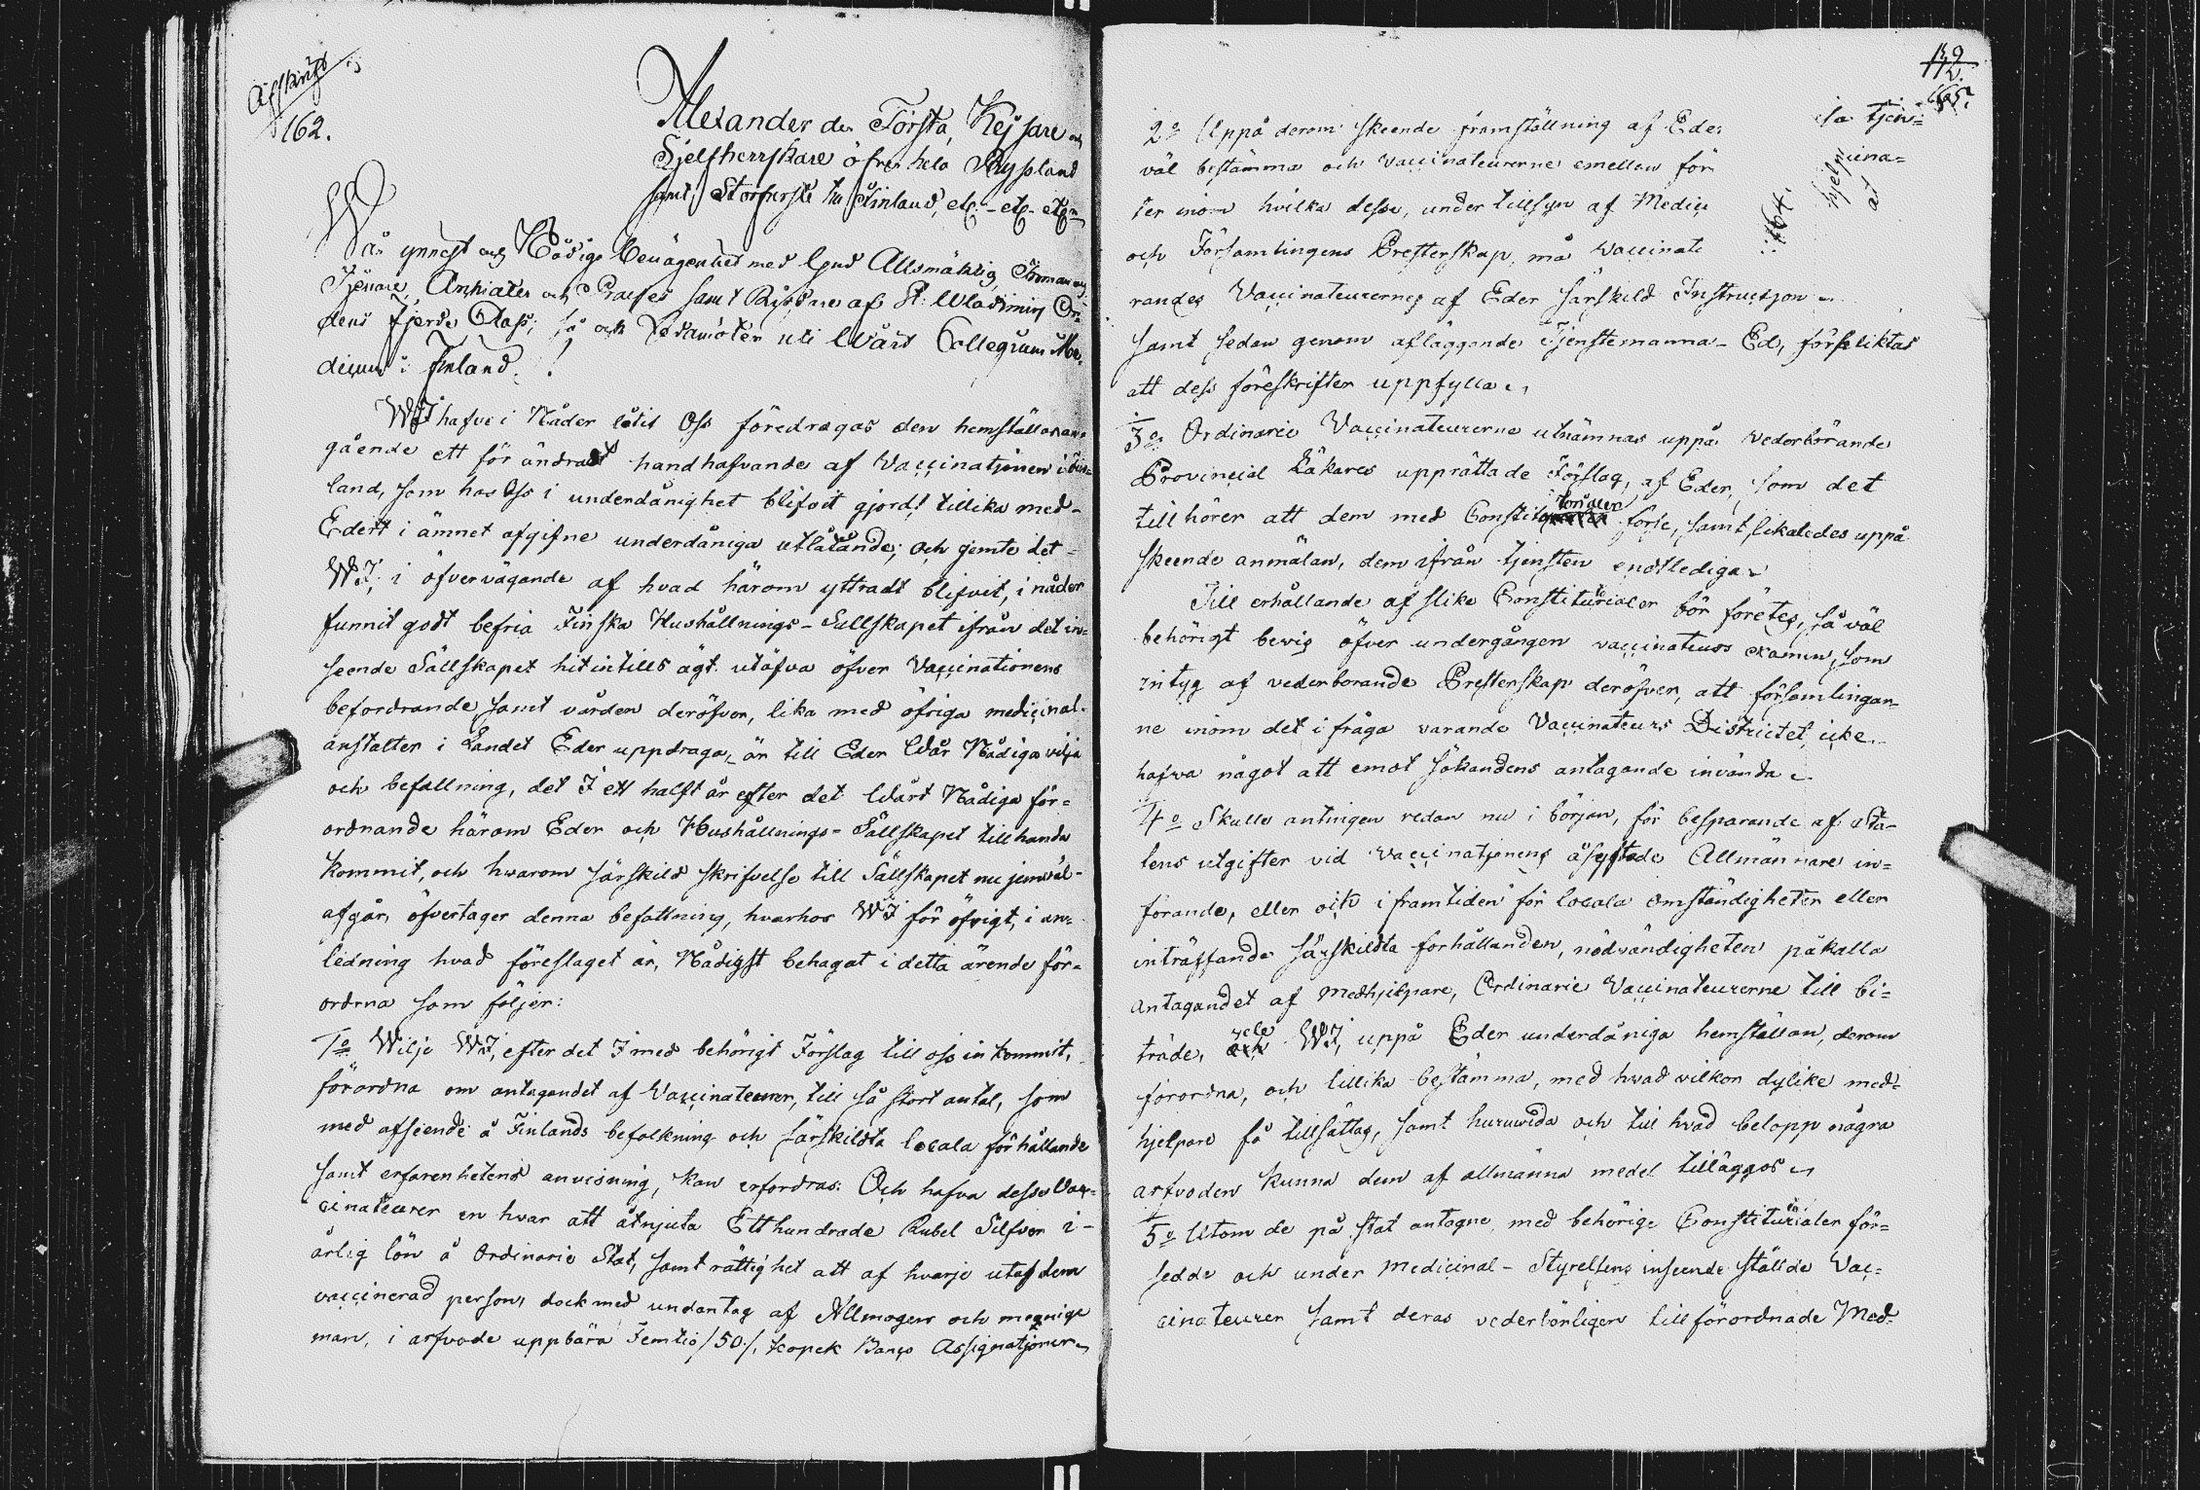 Afskrift
162.
Alexander den Första, Kejsare och
Sjelfherrskare öfver hela Ryssland
samt Storfurste til Finland, etc. - etc. etc.
Wår ynnest och Nådige benägenhet med Gud Allsmäktig, Troman och
Tjenare, Archiater och Præses samt Riddare af St: Wladimirs Or-
dens fjerde Class; så och Ledamöter uti Wårt Collegium Me-
dicum i Finland!
WJ hafve i Nåder låtit Oss föredragas den hemställan an-
gående ett för ändradt handhafvande af Vaccinationen i Fin-
land, som hos Oss i underdånighet blifvit gjord! tillika med -
Edert i ämnet afgifne underdåniga utlåtande; och gemte det =
WJ, i öfvervägande af hvad härom yttradt blifvit, i nåder
funnit godt befria Finska Hushållnings-Sällskapet ifrån det in-
seende Sällskapet hitintills ägt utöfva öfver Vaccinationens
befordrande samt vården deröfver, lika med öfriga medicinal-
anstalter i Landet Eder uppdraga, är till Eder Wår Nådiga vilja
och befallning, det I ett halft år efter det Wårt Nådiga för=
ordnande härom Eder och Hushållnings-Sällskapet tillhanda
kommit, och hvarom särskild skrifvelse till Sällskapet nu jemväl-
afgår, öfvertager denna befattning, hvarhos WJ för öfrigt, i an-
ledning hvad föreslaget är, Nådigst behagat i detta ärende för-
ordna som följer:
1o Wilje WJ, efter det I med behörigt Förslag till oss in kommit,
förordna om antagandet af Vaccinateurer, till så stort antal, som
med afseende å Finlands befolkning och särskildta locala förhållande
samt erfarenhetens anvisning, kan erfordras: Och hafva desse Vac-
cinateurer en hvar att åtnjuta Etthundrade Rubel Silfver i -
årlig lön å Ordinarie Stat, samt rättighet att af hvarje utaf dem
vaccinerad person, dock med undantag af Allmogen och menige
man, i arfvode uppbära Femtio /50./. kopek Banco Assignationer
2o Uppå derom skeende framställning af Eder
väl bestämma och vaccinateurerne emellan för
ter inom hvilka desse, under tillsyn af Medici
och Församlingens Presterskap, må Vaccinati
randes Vaccinateurernes af Eder särskild Instruction
samt sedan genom afläggande Tjenstemanna-Ed, förpliktas
att dess föreskrifter uppfylla
3o Ordinarie Vaccinateurerne utnämnas uppå vederbörande
Provincial Läkares upprättade Förslag, af Eder, som det
tillhörer att dem med Constitutorialer förse, samt likaledes uppå
skeende anmälan, dem ifrån tjensten endtlediga
Till erhållande af slike Constitutorialer bör företes, så väl
behörigt bevis öfver undergången vaccinateurs examen, som
intyg af vederborande Presterskap deröfver, att församlingar-
ne inom det i fråga varande Vaccinateurs Districtet, icke
hafva något att emot sökandens antagande invända
4o Skulle antingen redan nu i början, för besparande af Sta-
tens utgifter vid vaccinationens åsyftade Allmännare in=
förande, eller och i framtiden för locala omständigheter eller
inträffande särskildta forhållanden, nödvändigheten påkalla
antagandet af medhjelpare, Ordinarie Vaccinateurerne till bi=
träde, vele WJ, uppå Eder underdåniga hemställan, derom
förordna, och tillika bestämma, med hvad vilkor dylike med=
hjelpare få tillsättas, samt huruvida och till hvad belopp några
arfvoden kunna dem af allmänna medel tilläggas
5o Utom de på stat antagne med behörige Constitutorialer för=
sedde och under Medicinal-Styrelsens inseende ställde Vac=
cinateurer samt deras vederbörligen tillförordnade Med-
165.
164.